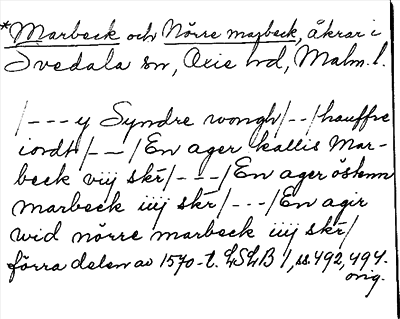 *Marbeck och Nörre marbeck, åkrar i
Svedala sn, Oxie hd, Malm. l.
/---y Syndre wongh/--/hauffue
iordt/--/En ager kallis Mar-
beck viij skr̄/---/En ager östenn
marbeck iiij skr̄/---/En agir
wid nörre marbeck iiij skr̄/
förra delen av 1570-t. LSLB 1, ss. 492, 494.
orig.